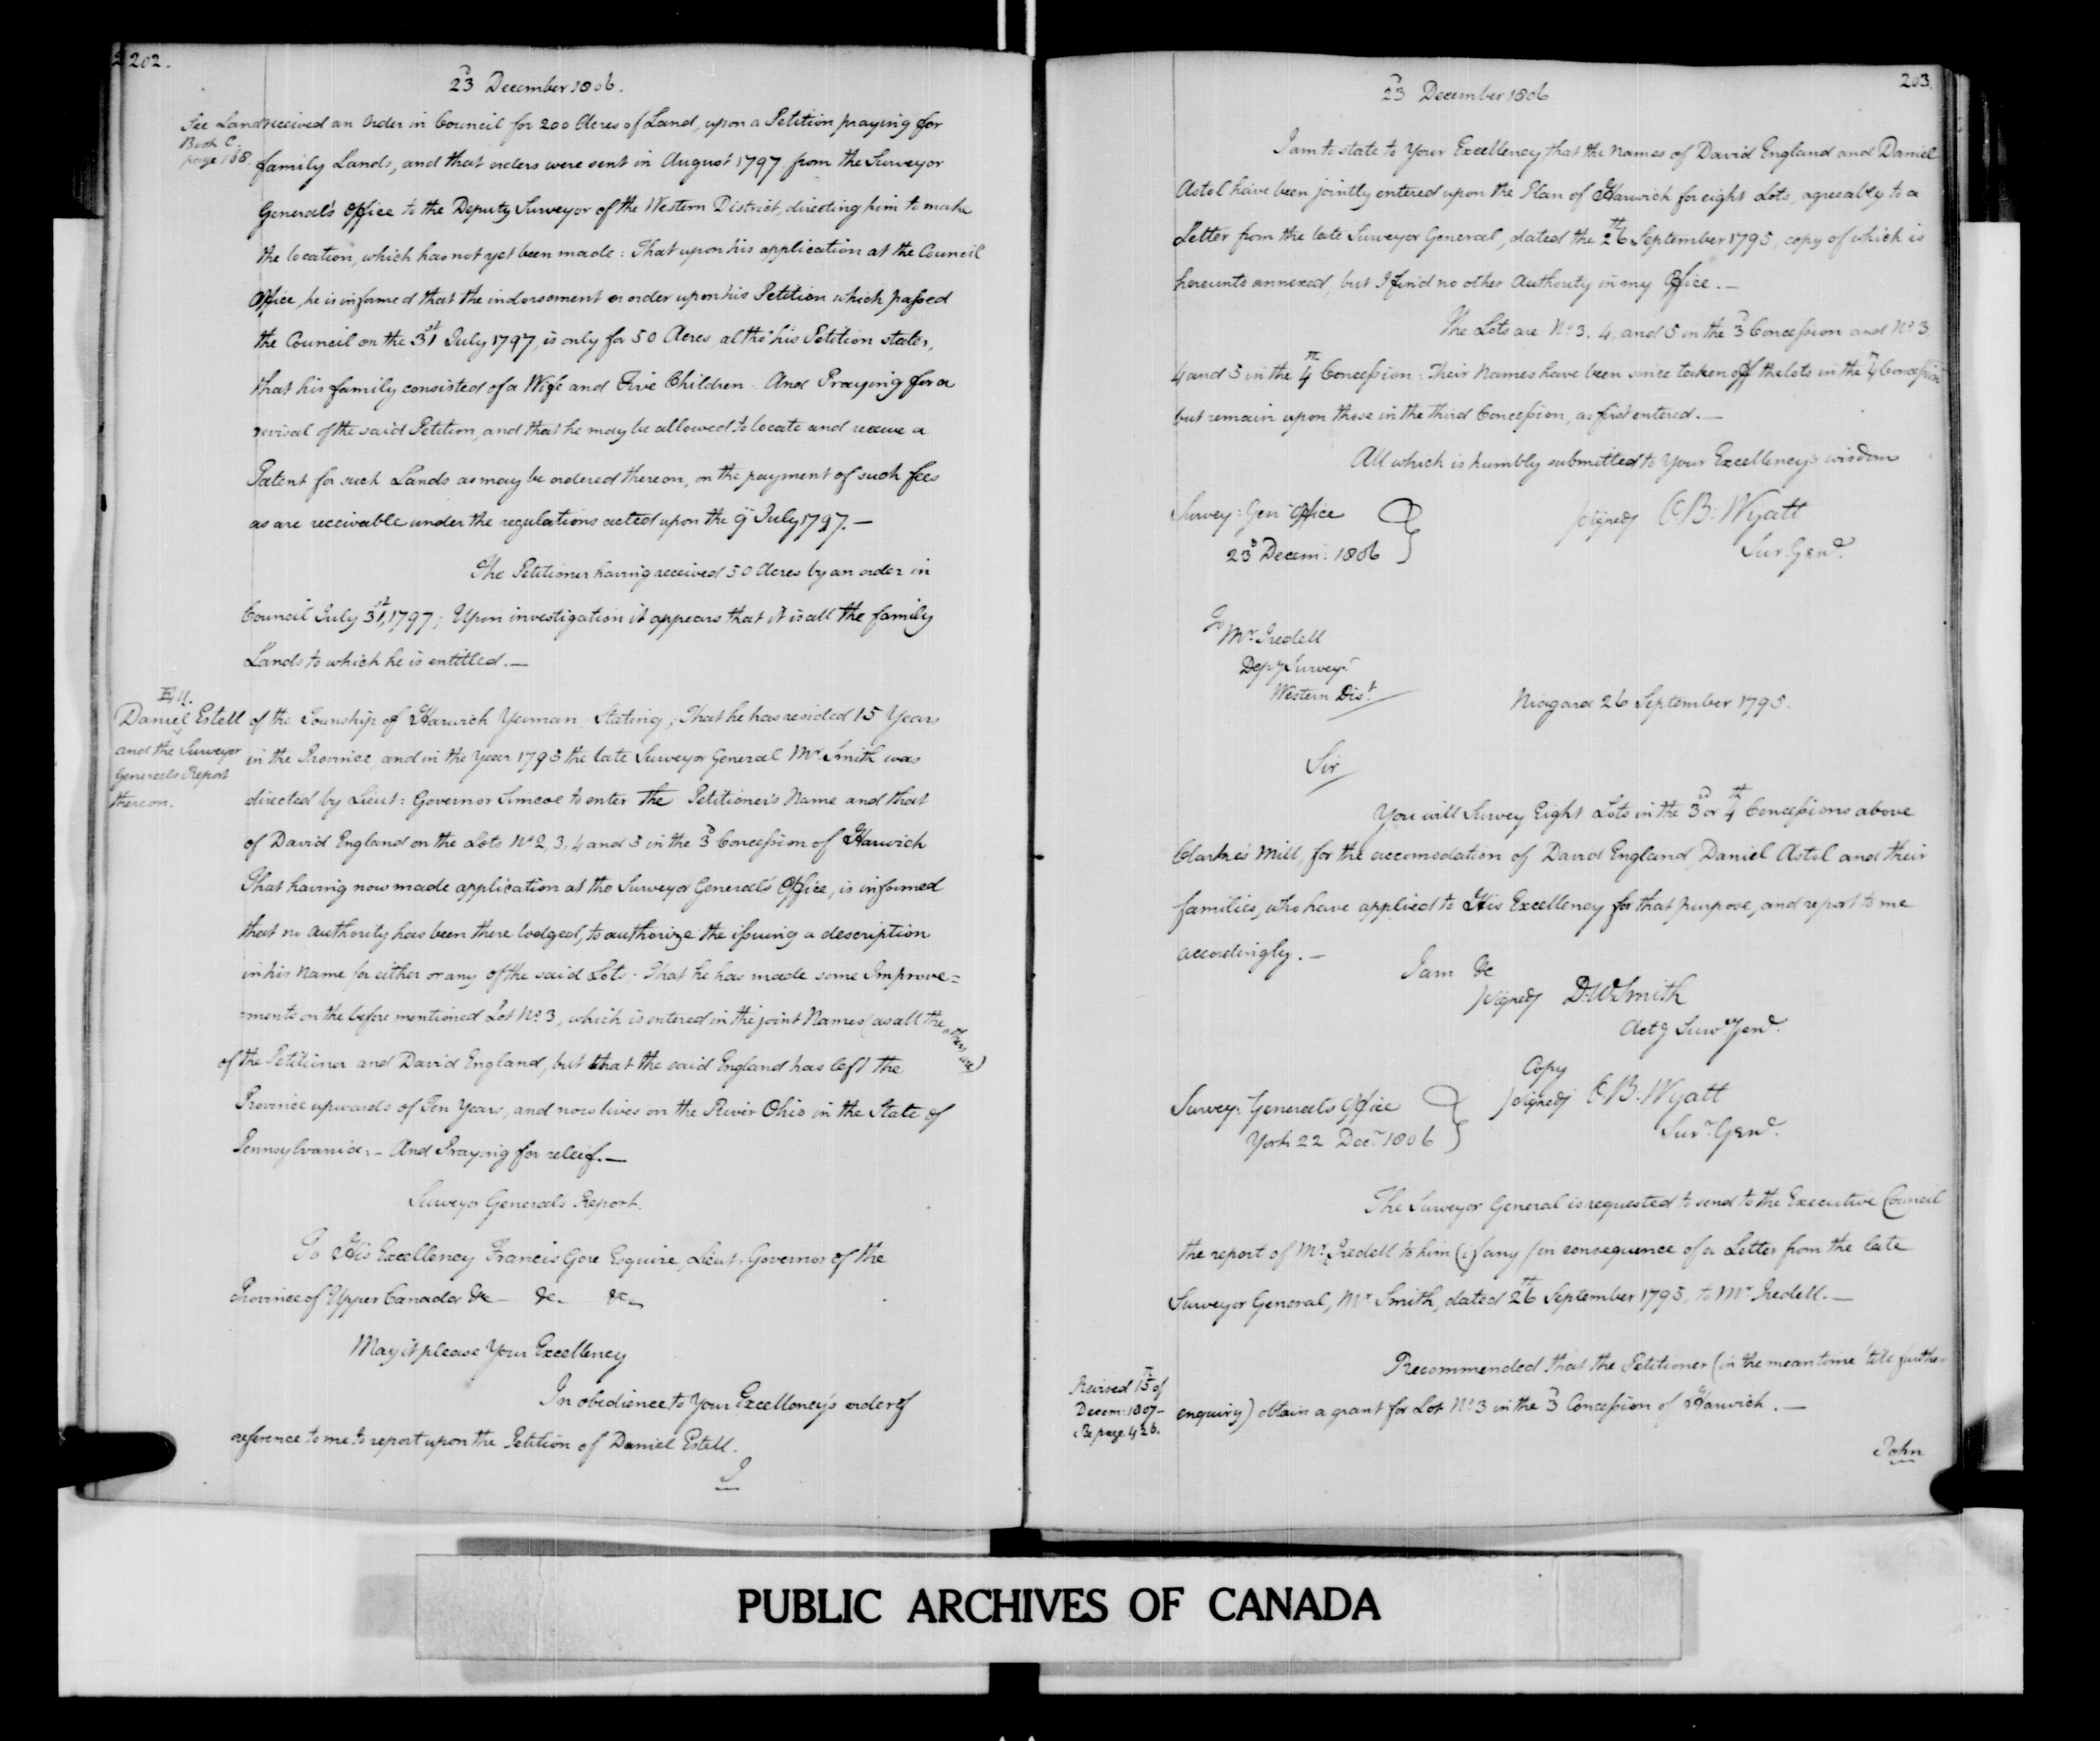 202.
23d December 1806.
See Land
Book C.
page 168.
received an Order in Council for 200 Acres of Land, upon a Petition praying for
family Lands, and that orders were sent in August 1797 from the Surveyor
General's Office to the Deputy Surveyor of the Western District, directing him to make
the location, which has not yet been made: That upon his application at the Council
Office, he is informed that the indorsement or order upon his Petition which passed
the Council on the 31st July 1797, is only for 50 Acres, altho' his Petition states,
that his family consisted of a Wife and Five Children. And Praying for a
revisal of the said Petition, and that he may be allowed to locate and receive a
Patent for such Lands as may be ordered thereon, on the payment of such fees
as are receivable under the regulations acted upon the 9th July 1797.—
The Petitioner having received 50 Acres by an order in
Council July 31st, 1797; Upon investigation it appears that it is all the family
Lands to which he is entitled.—
E 11.
Daniel Estell
and the Surveyor
Generals Report
thereon.
of the Township of Harwich Yeoman. Stating, That he has resided 15 Years
in the Province, and in the Year 1795 the late Surveyor General Mr Smith was
directed by Lieut: Governor Simcoe to enter the Petitioner's Name and that
of David England on the Lots No 2, 3, 4 and 5 in the 3d Concession of Harwich
That having now made application at the Surveyor General's Office, is informed
that no authority has been there lodged, to authorize the issuing a description
in his Name for either or any of the said Lots; That he has made some Improve=
=ments on the before mentioned Lot No 3, which is entered in the joint Names (as all the others are)
of the Petitioner and David England, but that the said England has left the
Province upwards of Ten Years, and now lives on the River Ohio in the State of
Pennsylvania.- And Praying for releif.—
Surveyor Generals Report.
To His Excellency Francis Gore Esquire, Lieut. Governor of the
Province of Upper Canada &c- &c- &c-
May it please Your Excellency
In obedience to Your Excellency's order of
reference to me to report upon the Petition of Daniel Estell.
I
203.
23d December 1806
I am to state to Your Excellency that the names of David England and Daniel
Astel have been jointly entered upon the Plan of Harwich for eight Lots, agreeably to a
Letter from the late Surveyor General, dated the 26th September 1795, copy of which is
hereunto annexed, but I find no other Authority in my Office.—
The Lots are No 3. 4, and 5 in the 3d Concession and No 3.
4 and 5 in the 4th Concession: Their Names have been since taken off the lots in the 4th Concession
but remain upon those in the third Concession, as first entered.—
All which is humbly submitted to Your Excellency's wisdom
Survey: Genl Office
23d Decem: 1806
signed C.B. Wyatt
Sur. Genl.
To Mr. Iredell
Depy Surveyr
Western Dist.
Niagara 26 September 1795.
Sir
You will Survey Eight Lots in the 3d or 4th Concessions above
Clarke's Mill, for the accomodation of David England, Daniel Astel and their
families, who have applied to His Excellency for that purpose, and report to me
accordingly.—
I am &c
signed D.W. Smith
Actg Survr Genl.
Copy
signed C.B. Wyatt
Survr. Genl.
Survey: General's Office
York 22 Decr 1806
The Surveyor General is requested to send to the Executive Council
the report of Mr. Iredell to him (if any) in consequence of a Letter from the late
Surveyor General, Mr Smith, dated 26th September 1795, to Mr Iredell.—
Revised 15th of
Decem: 1807-
See page 426.
Recommended that the Petitioner (in the mean time 'till further
enquiry) obtain a grant for Lot No 3 in the 3d Concession of Harwich.—
John
PUBLIC ARCHIVES OF CANADA